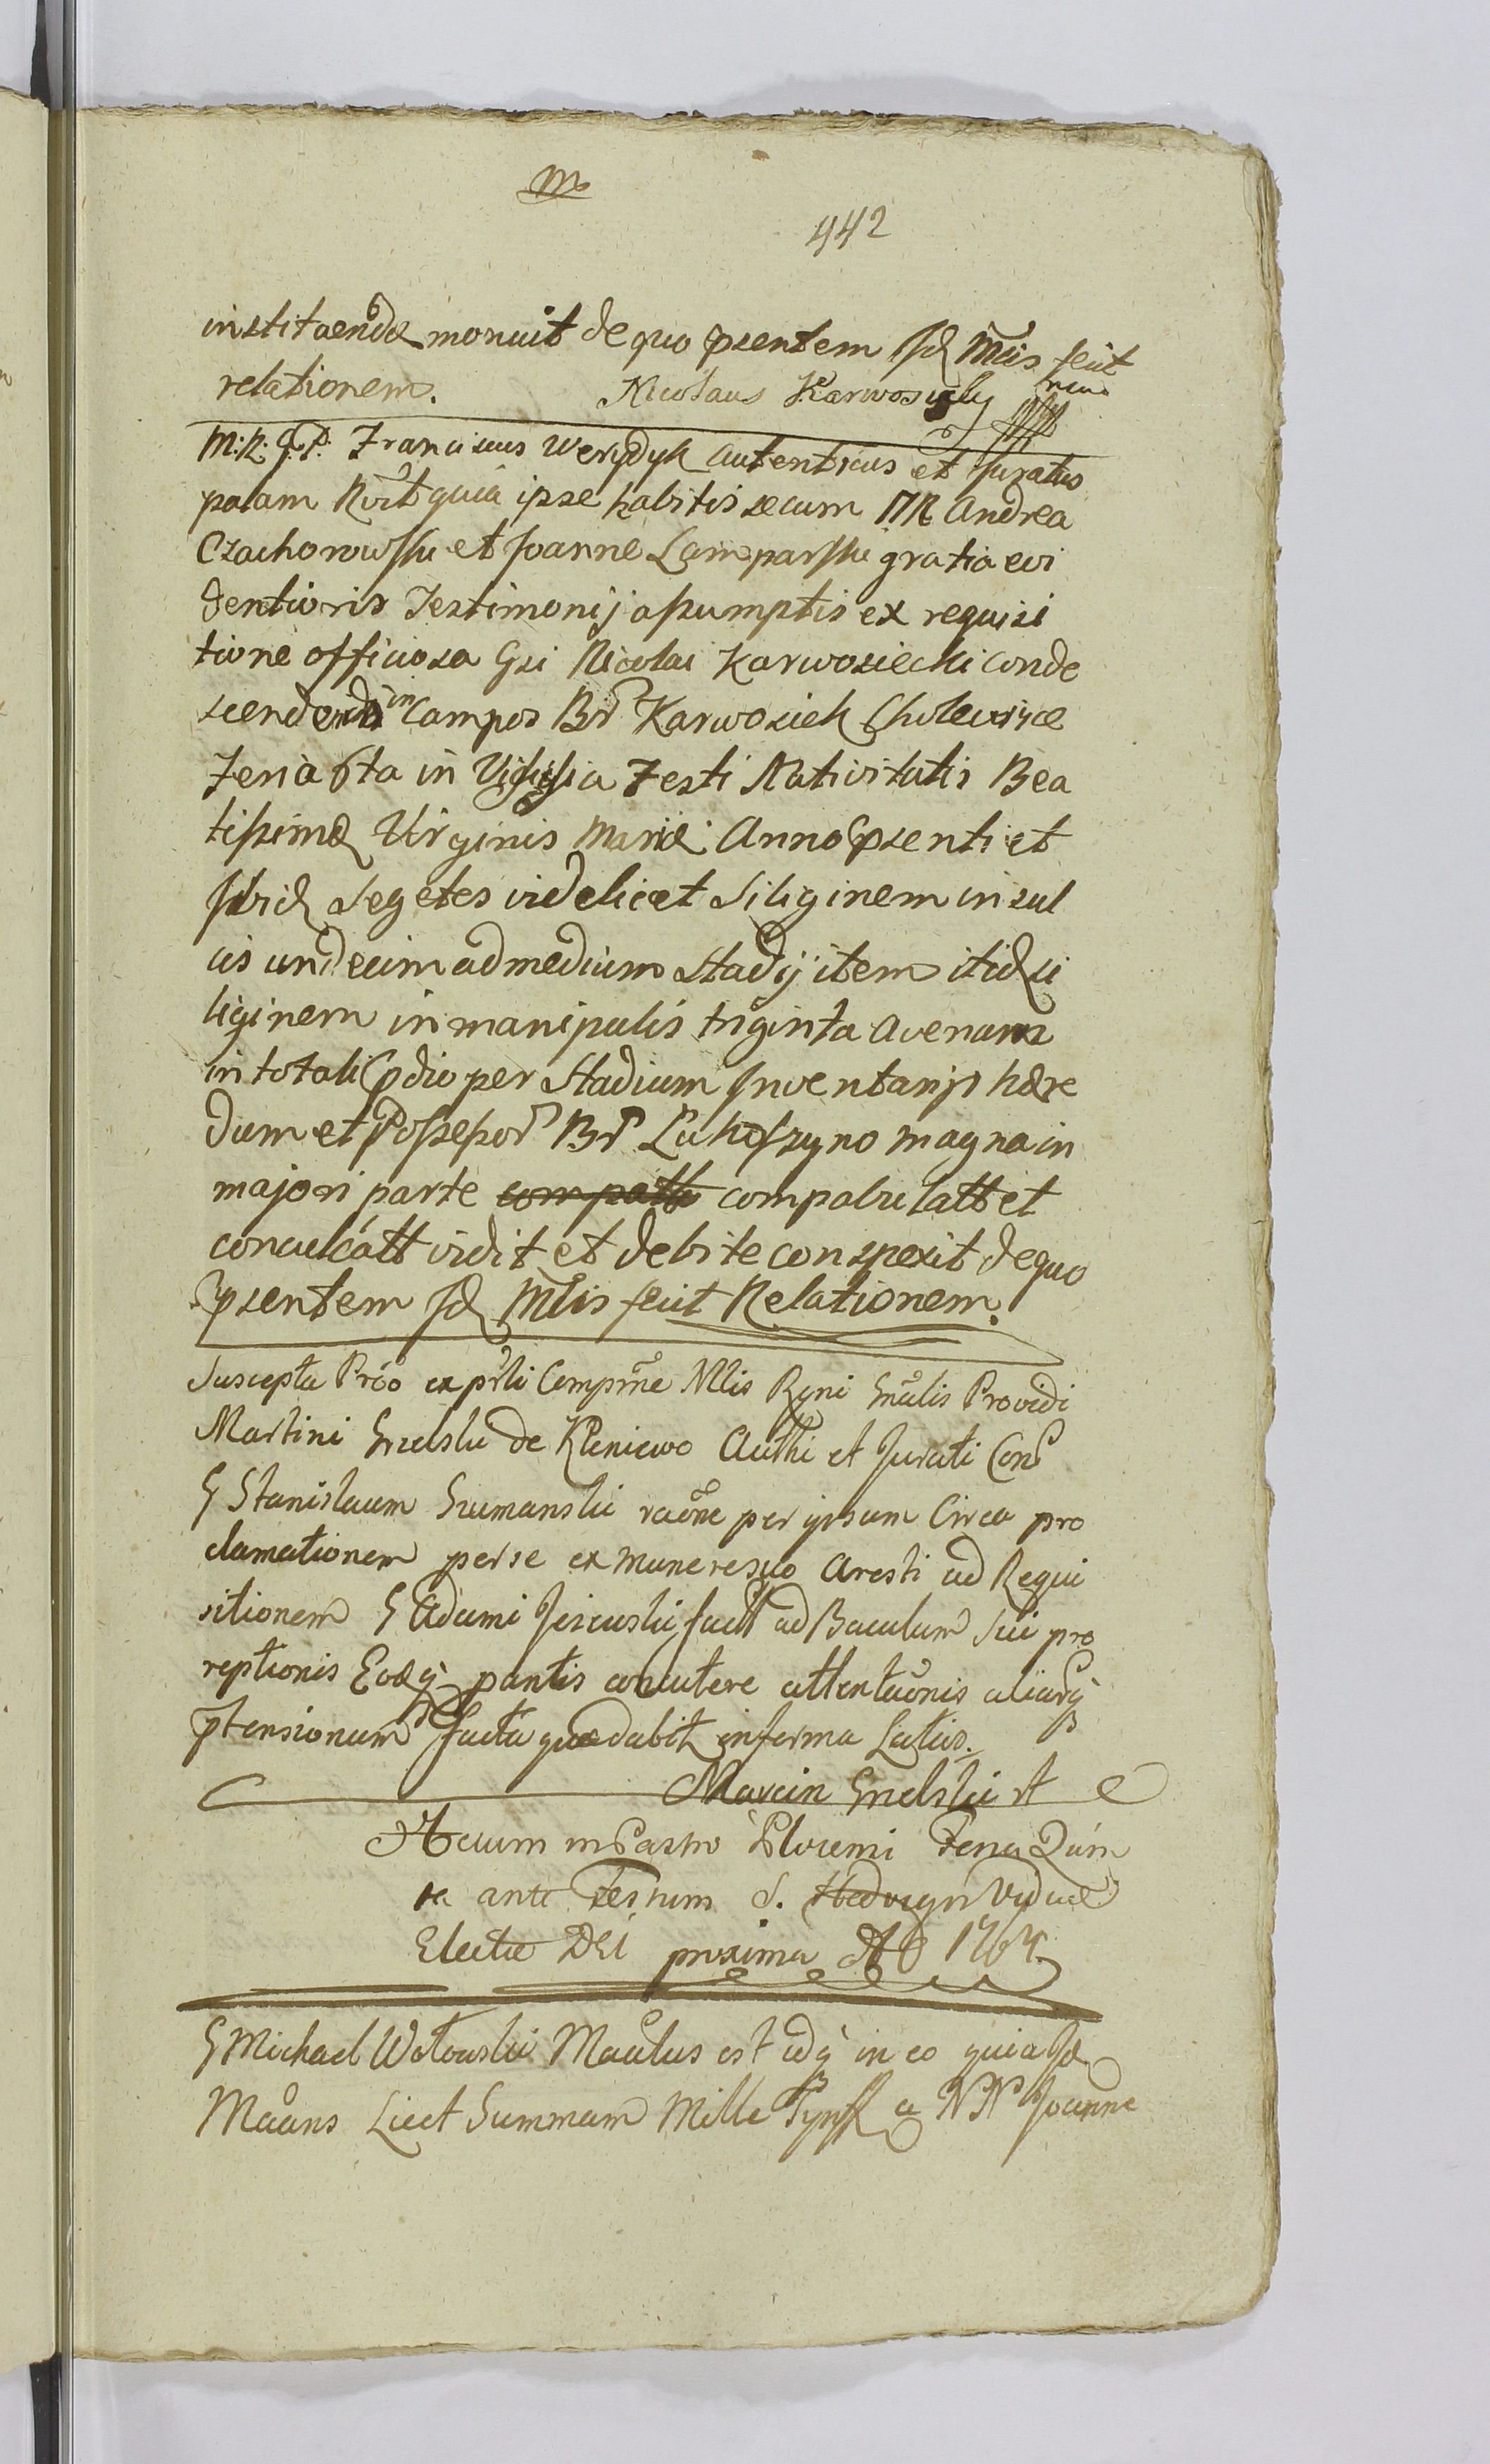 442
instituendæ monuit de quo psentem Id Mlis fecit
relationem. Nicolaus Karwosiecky mp
M: R: G: P: Franciscus Werydyk autenticus et Juratus
palam Rcvit quia ipse habitis secum NN Andrea
Czachorowski et Joanne Lamparski gratia evi
dentioris Testimonij assumptis ex requisi
tione officiosa Gsi Nicolai Karwosiecki conde
scendendo in Campos Br Karwosiek Cholewice
Feria 6ta in Vigilia Festi Nativitatis Bea
tissimæ Virginis Mariæ Anno psenti et
ibid Segetes videlicet Siliginem in sul
cis undecim ad medium Stadij item itid si
liginem in manipulis triginta avenam
in totali pdio per Stadium Inventarys hære
dum et Possessor Br Lukoszyno magna in
majori parte compatt compabulatt et
conculcatt vidit et debite conspexit de quo
psentem Id Mlis fecit Relationem.
Suscepta Prõo ex prli Comprne Mlis Rgni Gnãlis Providi
Martini Grzelski de Kleniewo Authi et Jurati Con
G Stanislaum Szumanski raõne per ipsum Circa pro
clamationem per se ex munere suo Aresti ad Requi
sitionem G Adami factt ad Baculum sui pro
reptionis Eoq partis concutere attentaõnis aliarq
ptensionum facta quæ dabit in forma Latius.
Marcin Grzelski rt
Actum in Castro Plocensi Feria Quin
ta ante Festum S. Hedvigis Viduæ
Electæ DEI proxima AD 1764.
G Michael Wołowski Maũlus est idq in eo quia Id
Maũans Licet Summam Mille Tynff a NN Joanne